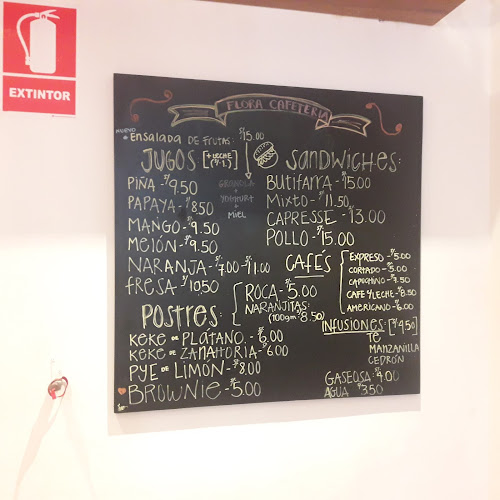 EXTINTOR
FLORA CAFETERÍA
NUEVO
* ENSALADA DE FRUTAS: S/15.00
GRANOLA
+
YOGHURT
+
MIEL
JUGOS [+ LECHE
PIÑA - S/9.50
PAPAYA - S/8.50
MANGO - S/9.50
MELÓN - S/9.50
NARANJA - S/7.00 - S/11.00
FRESA S/10.50
SANDWICHES:
BUTIFARRA - S/15.00
MIXTO - S/11.50
CAPRESSE - S/13.00
POLLO - S/15.00
CAFÉS
EXPRESO - S/5.00
CORTADO - S/5.00
CAPUCHINO - S/7.50
CAFE Y LECHE - S/8.50
AMERICANO - S/6.00
POSTRES:
ROCA - S/5.00
NARANJITAS:
(100gm S/8.50)
KEKE DE PLÁTANO - S/6.00
KEKE DE ZANAHORIA - S/6.00
PYE DE LIMÓN - S/8.00
BROWNIE - S/5.00
INFUSIONES: [S/4.50]
TÉ
MANZANILLA
CEDRÓN
GASEOSA: S/4.00
AGUA S/3.50